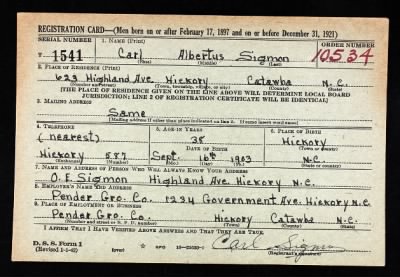 REGISTRATION CARD—(Men born on or after February 17, 1897 and on or before December 31, 1921)
SERIAL NUMBER 1. NAME (Print) ORDER NUMBER
T 1541 Carl Albertus Sigmon 10534
(First) (Middle) (Last)
2. PLACE OF RESIDENCE (Print)
623 Highland Ave. Hickory Catawba N.C.
(Number and street) (Town, township, village, or city) (County) (State)
[THE PLACE OF RESIDENCE GIVEN ON THE LINE ABOVE WILL DETERMINE LOCAL BOARD
JURISDICTION; LINE 2 OF REGISTRATION CERTIFICATE WILL BE IDENTICAL]
3. MAILING ADDRESS
Same
[Mailing address if other than place indicated on line 2. If same insert word same]
4. TELEPHONE 5. AGE IN YEARS 6. PLACE OF BIRTH
(nearest) 38 Hickory
DATE OF BIRTH (Town or county)
Hickory 587 Sept. 16th 1903 N.C.
(Exchange) (Number) (Mo.) (Day) (Yr.) (State or country)
7. NAME AND ADDRESS OF PERSON WHO WILL ALWAYS KNOW YOUR ADDRESS
O. E. Sigmon Highland Ave. Hickory N.C.
8. EMPLOYER'S NAME AND ADDRESS
Pender Gro. Co. 1234 Government Ave. Hickory N.C.
9. PLACE OF EMPLOYMENT OR BUSINESS
Pender Gro. Co. Hickory Catawba N.C.
(Number and street or R. F. D. number) (Town) (County) (State)
I AFFIRM THAT I HAVE VERIFIED ABOVE ANSWERS AND THAT THEY ARE TRUE.
D. S. S. Form 1 (over) GPO Carl Sigmon
(Revised 1-1-42) (Registrant's signature)